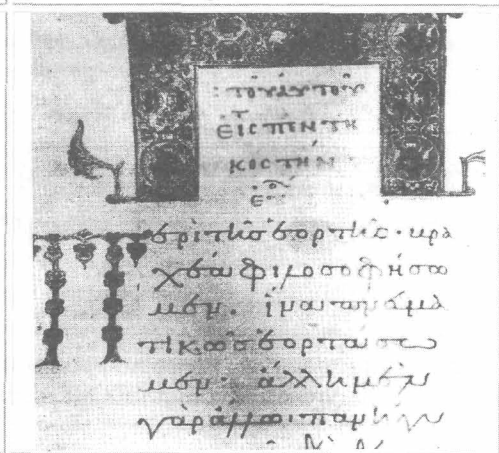 : τοῦ αὐτοῦ
εἰς πεντη
κοστήν
Περὶ τῆς ἑορτῆς· βρα
χέα φιλοσοφήσω
μεν. ἵνα πνευμα
τικῶς ἑορτάσω
μεν· ἄλλη μὲν
γὰρ ἄλλω· πανήγυ